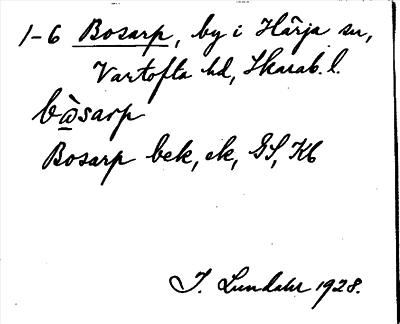 1-6 Bosarp, by i Härja sn,
Vartofta hd, Skarab. l.
bò̱̱sarp
Bosarp bek, ek, GS, Kb
I. Lundahl 1928.